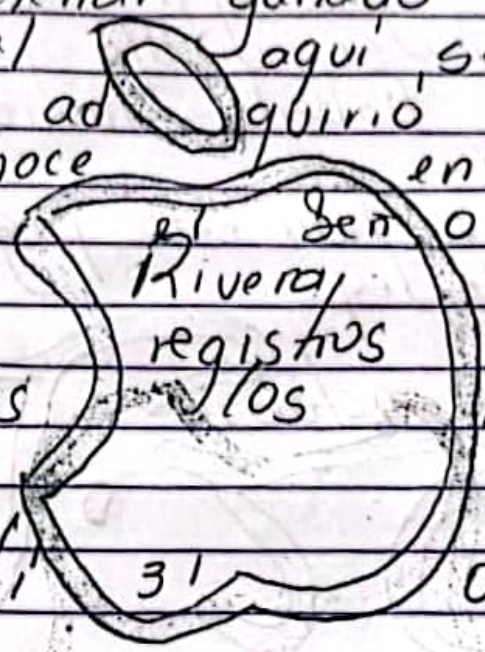 ganado
aquí s
ad quirió
noce en
el Sen o
Rivera,
registros
s los
31